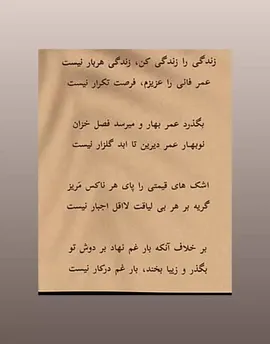 زندگی را زندگی کن، زندگی هربار نیست
عمر فانی را عزیزم، فرصت تکرار نیست
بگذرد عمر بهار و میرسد فصل خزان
نوبهار عمر دیرین تا ابد گلزار نیست
اشک های قیمتی را پای هر ناکس مَریز
گریه بر هر بی لیاقت لااقل اجبار نیست
بر خلاف آنکه بار غم نهاد بر دوش تو
بگذر و زیبا بخند، بار غم درکار نیست